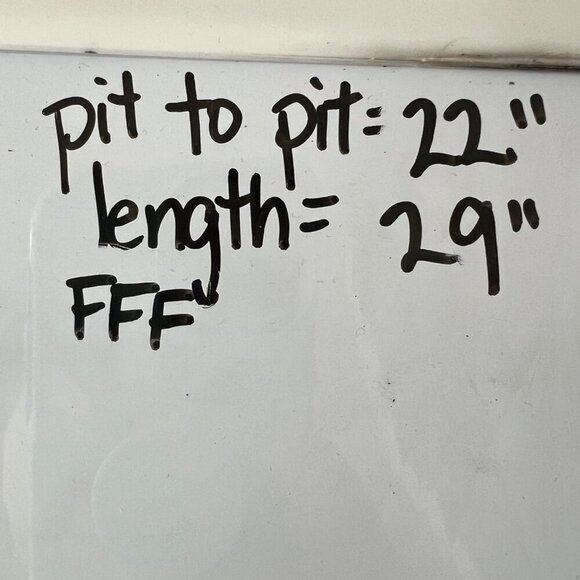 pit to pit= 22"
length= 29"
FFF